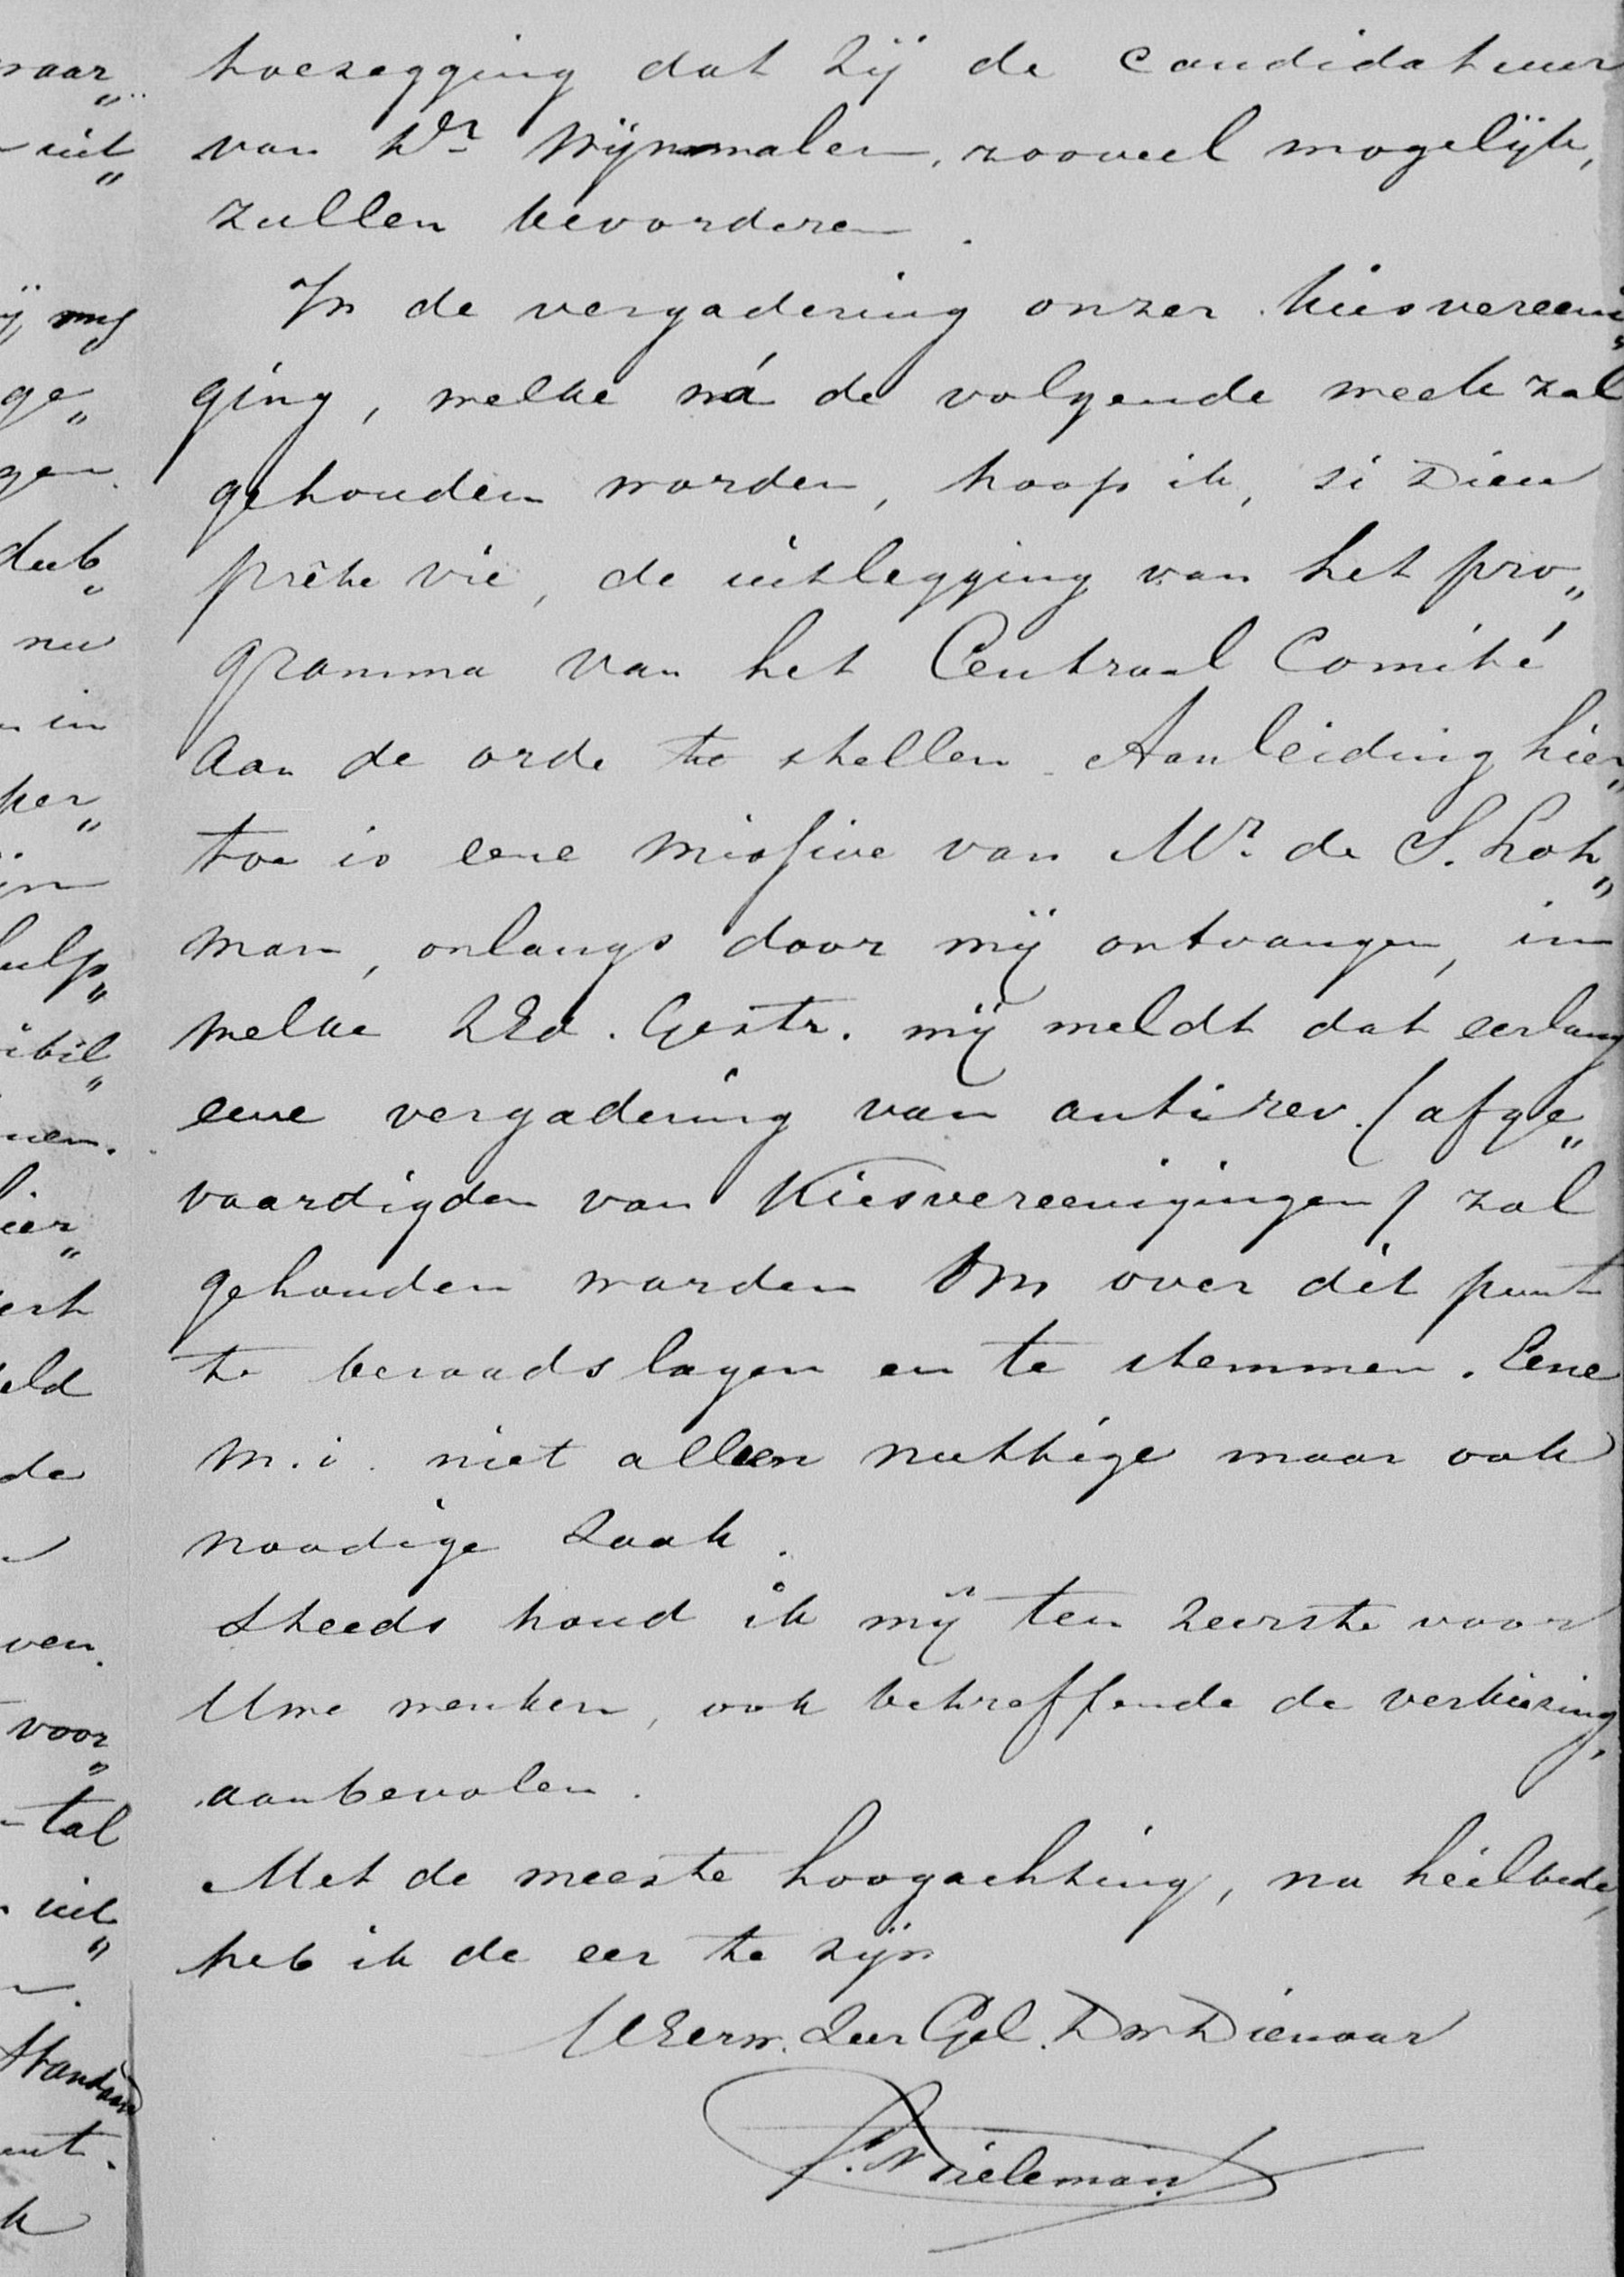 toezegging dat zij de candidatuur
van Dr. Wijnmalen, zooveel mogelijk,
zullen bevorderen.
In de vergadering onzer Kiesvereeni„
ging, welke ná de volgende week zal
gehouden worden, hoop ik, si Dieu
prête vie, de uitlegging van het pro„
gramma van het Centraal Comité
aan de orde te stellen. Aanleiding hier„
toe is eene missive van Mr. de S. Loh„
man, onlangs door mij ontvangen, in
welke ZEd. Gestr. mij meldt dat eerlang
eene vergadering van antirev. (afge„
vaardigden van Kiesvereenigingen) zal
gehouden worden om over dit punt
te beraadslagen en te stemmen. Eene
m.i. niet alleen nuttige maar ook
noodige zaak.
Steeds houd ik mij ten zeerste voor
Uwe wenken, ook betreffende de verkiezing,
aanbevolen.
Met de meeste hoogachting, na heilbede,
heb ik de eer te zijn
UEerw. Zeer Gel. Dw Dienaar
Dieleman
waar„
uit„
mij
ge„
gen.
dub„
nu
in
per„
hulp„
ibil„
nen.
ier„
eld
de
ven.
voor„
tal
uit„
Standaard